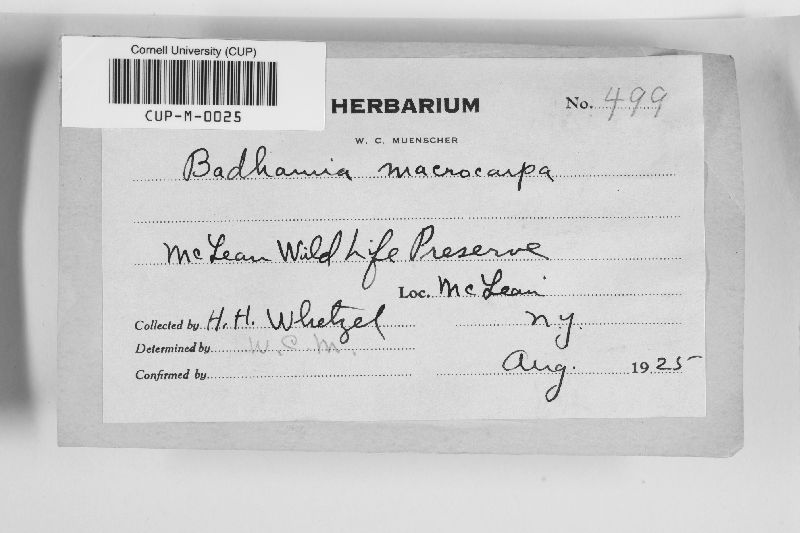 Cornell University (CUP)
CUP-M-0025
HERBARIUM
No. 499
W. C. MUENSCHER
Badhamia macrocarpa
McLean Wild Life Preserve
Loc. McLean
Collected by H. H. Whetzel
N.Y.
Determined by W. C. M.
Aug. 1925
Confirmed by